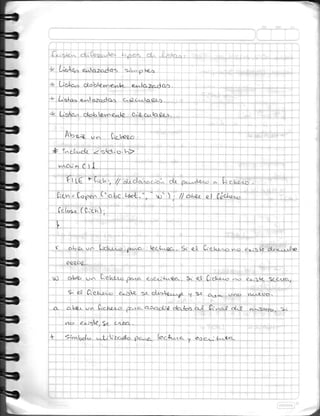 Existen diferentes tipos de listas:
* Listas enlazadas simples
* Listas doblemente enlazadas
* Listas enlazadas circulares
* Listas doblemente circulares
Abrir un fichero
# Include <stdio.h>
main ( ) {
FILE *fich; // declaración de puntero a fichero.
fich = fopen ("abc.txt", "w"); // abre el fichero
fclose (fich);
}
r abrir un fichero para lectura. Si el fichero no existe devuelve
error.
w abrir un fichero para escritura. Si el fichero no existe se crea,
si el fichero existe se destruye y se crea uno nuevo.
a abrir un fichero para añadir datos al final del mismo. Si
no existe, se crea.
+ Símbolo utilizado para lectura y escritura.